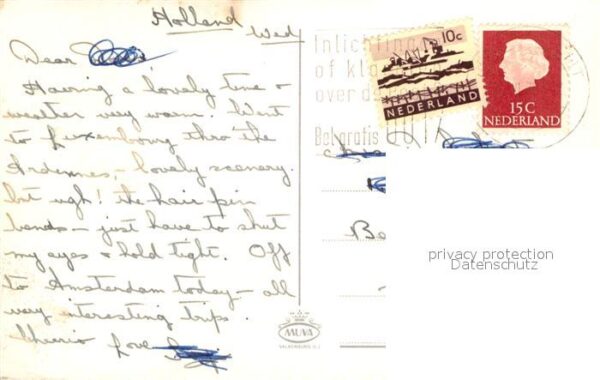 Holland
Wed
Dear
Having a lovely time &
weather very warm. Went
to Luxembourg thro' the
Ardennes - lovely scenery.
but ugh! the hair pin
bends - just have to shut
my eyes & hold tight. Off
to Amsterdam today - all
very interesting trips.
Cheerio Love
10c
NEDERLAND
15 C
NEDERLAND
Inlichting
of kla
over d
Bel gratis 0017
Be
MUVA
VALKENBURG
privacy protection
Datenschutz